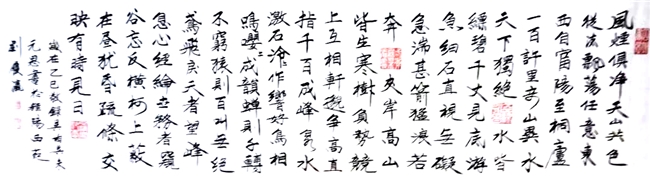 風煙俱净天山共色
從流飄蕩任意東
西自富陽至桐廬
一百許里奇山異水
天下獨絶水皆
縹碧千丈見底游
魚細石直視無礙
急湍甚箭猛浪若
奔夹岸高山
皆生寒樹負勢競
上互相軒邈争高直
指千百成峰泉水
激石泠作響好鳥相
鳴嚶成韻蟬則千轉
不窮猿則百叫無絶
鳶飛戾天者望峰
息心經綸世務者窺
谷忘反横柯上蔽
在晝猶昏疏條交
映有時見日
歲在乙巳秋録吴均與朱
元思書於陽西苑